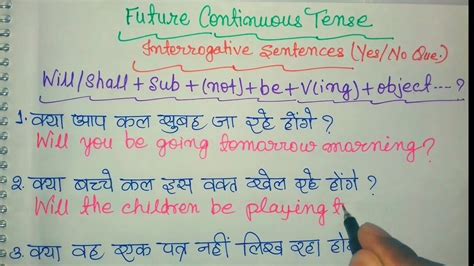 Future Continuous Tense
Interrogative Sentences (Yes/No Que.)
Will/Shall + Sub + (not) + be + V(ing) + object.....?
1. क्या आप कल सुबह जा रहे होंगे ?
Will you be going tomorrow marning?
2. क्या बच्चे कल इस वक्त खेल रहे होंगे ?
Will the children be playing t
3. क्या वह एक पत्र नहीं लिख रहा